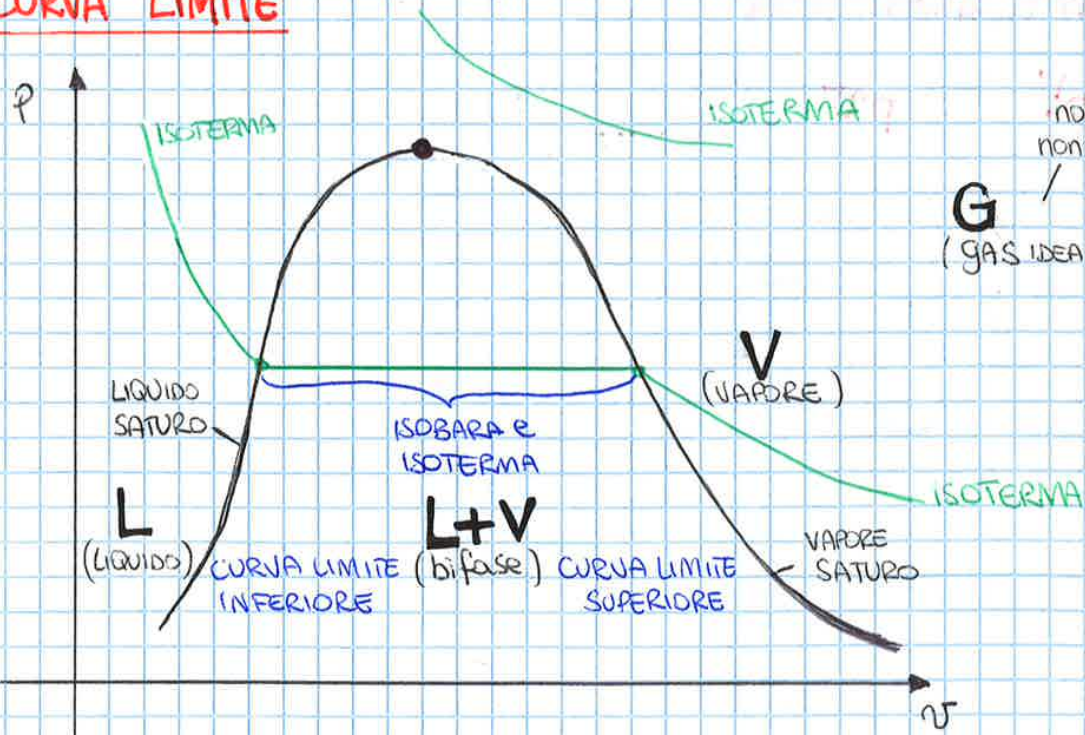 CURVA LIMITE
P
ISOTERMA
ISOTERMA
no
non
G
(GAS IDEA
V
(VAPORE)
LIQUIDO
SATURO
ISOBARA e
ISOTERMA
ISOTERMA
L
(LIQUIDO)
L+V
(bifase)
CURVA LIMITE
INFERIORE
CURVA LIMITE
SUPERIORE
VAPORE
SATURO
v